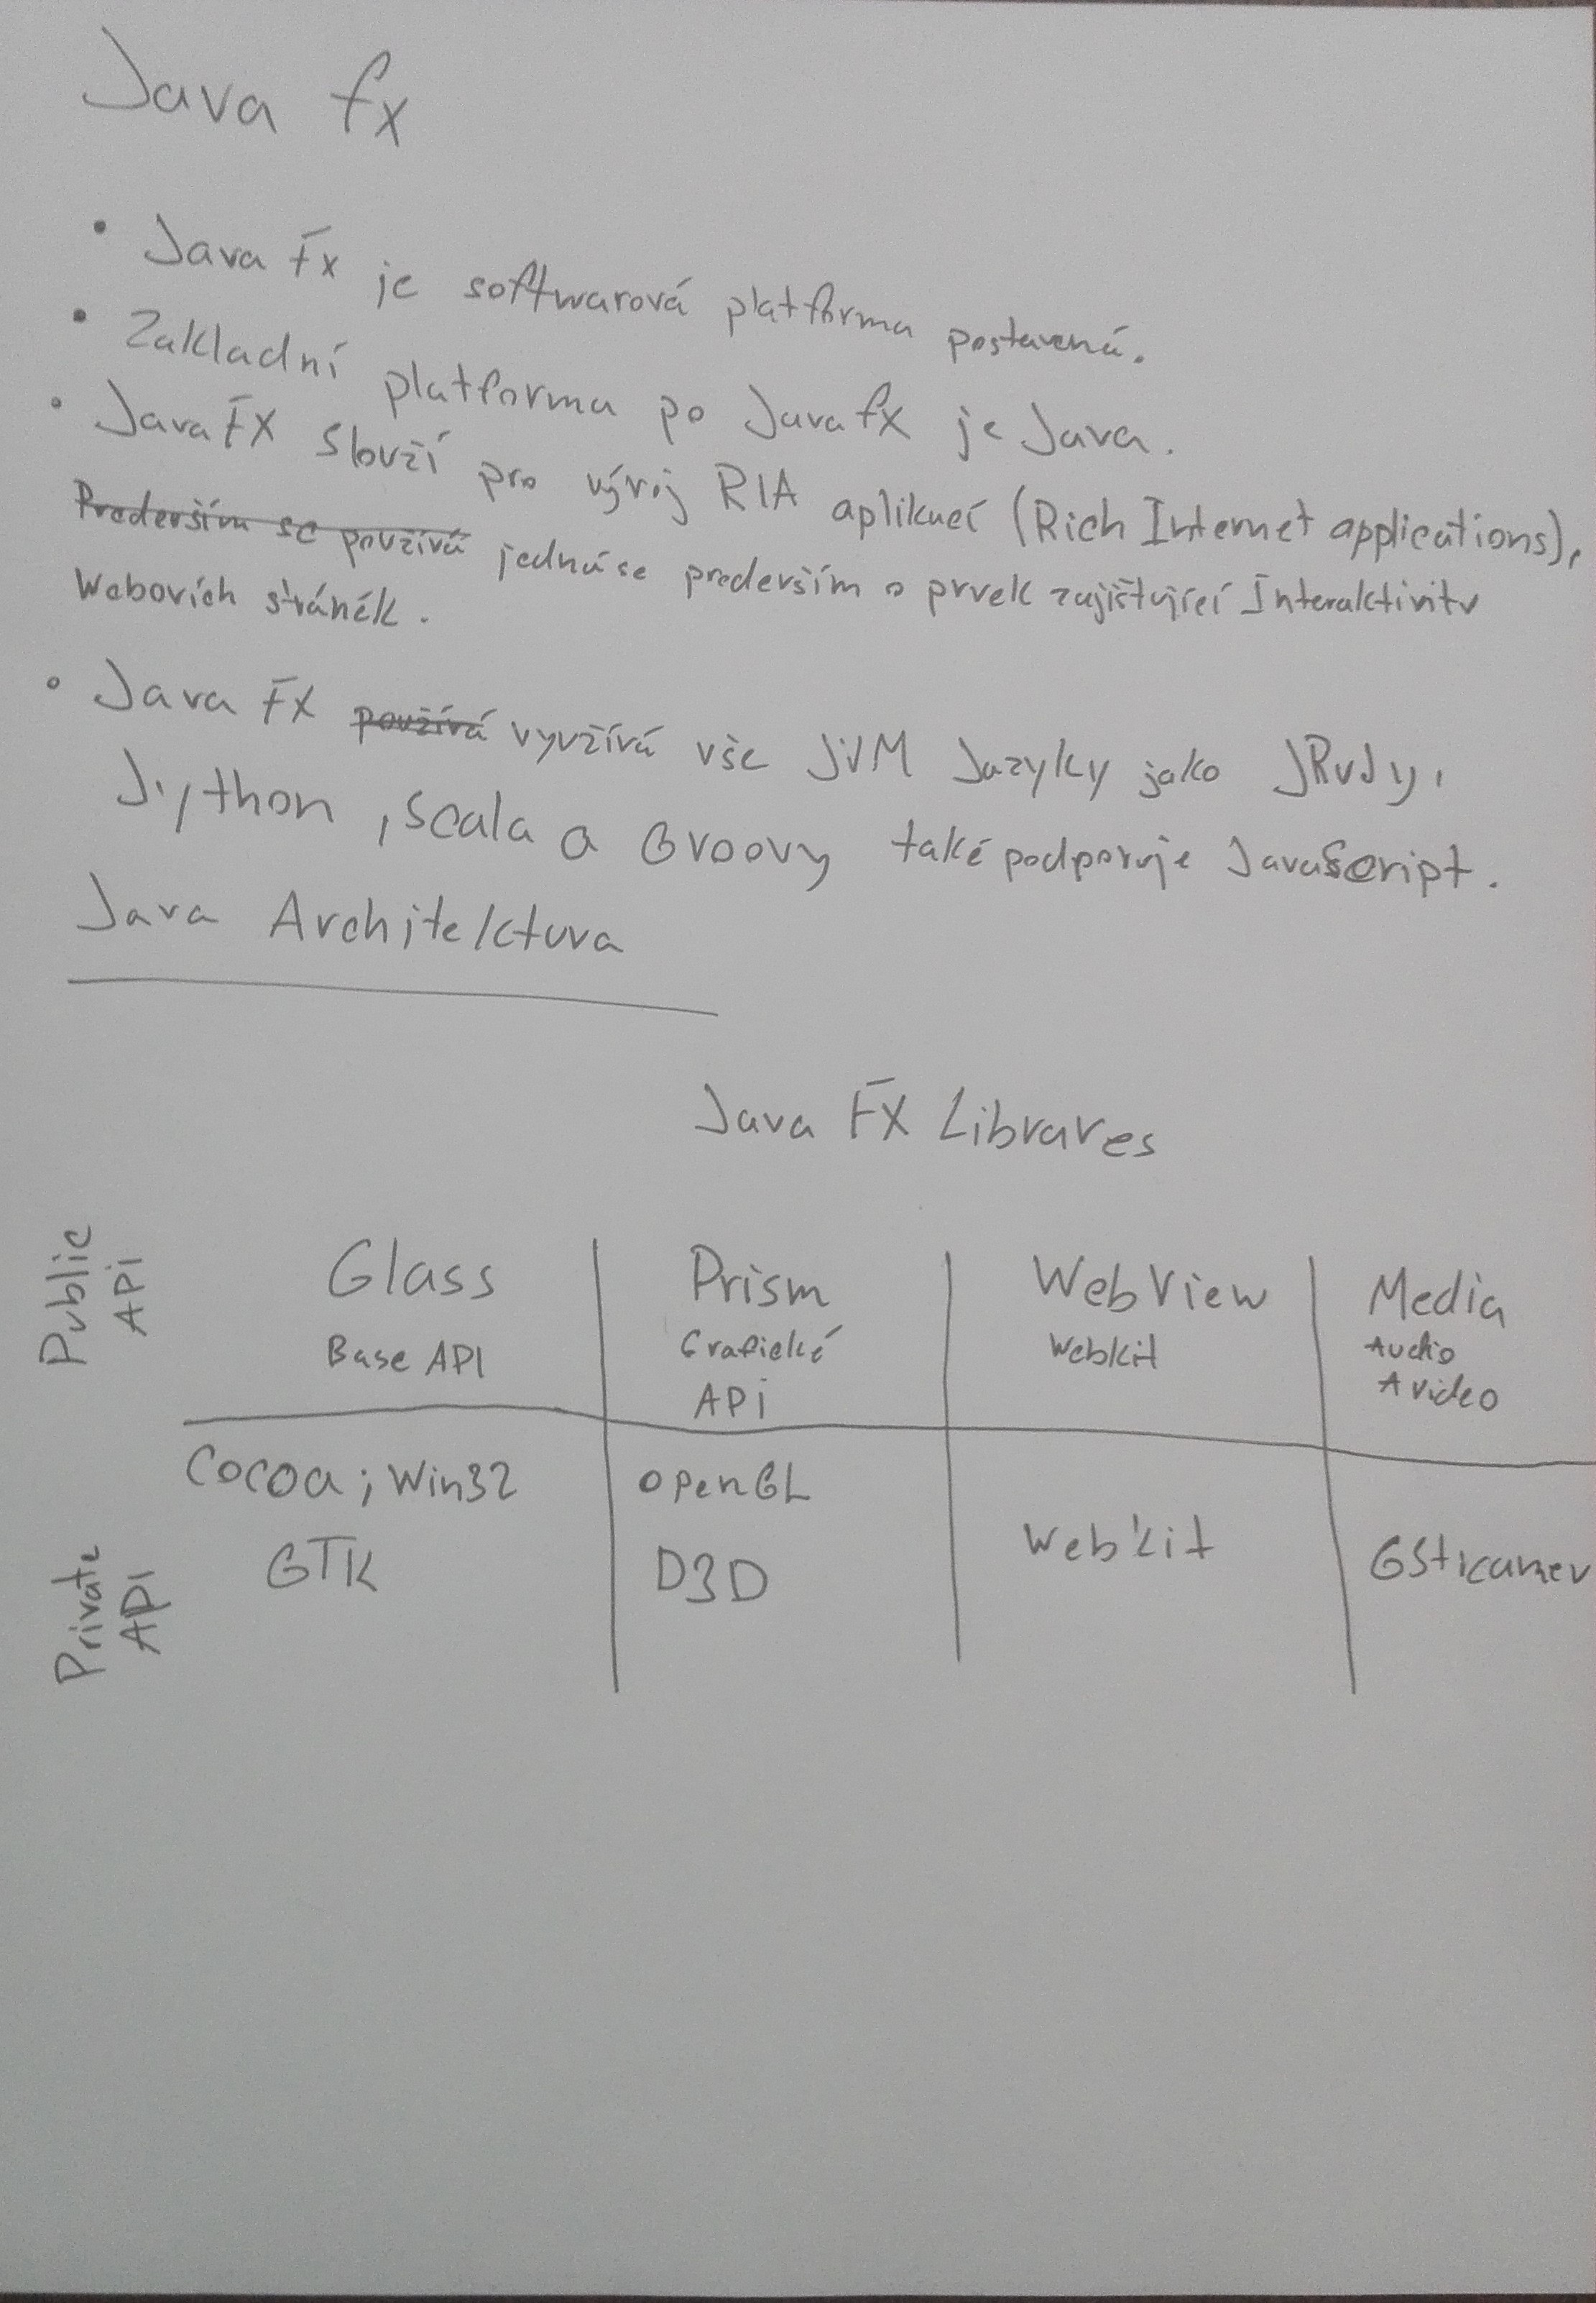 Java fx
• Java Fx je softwarová platforma postavená.
• Zakladní platforma po Java fx je Java.
• Java FX slouží pro vývoj RIA aplikací (Rich Internet applications),
Prederším se používá jednáse prederším o prvek zajištující Interaktivitu
Webovích stránék.
• Java FX používá využívá vše JVM Jazyky jako JRuby,
Jython, scala a Groovy také podporuje JavaScript.
Java Architektura
Java FX Librares
Public API
Glass Prism WebView Media
Base API Grafické API Webkit Audio A video
Private API
Cocoa; Win32 OpenGL Webkit GStreamer
GTK D3D